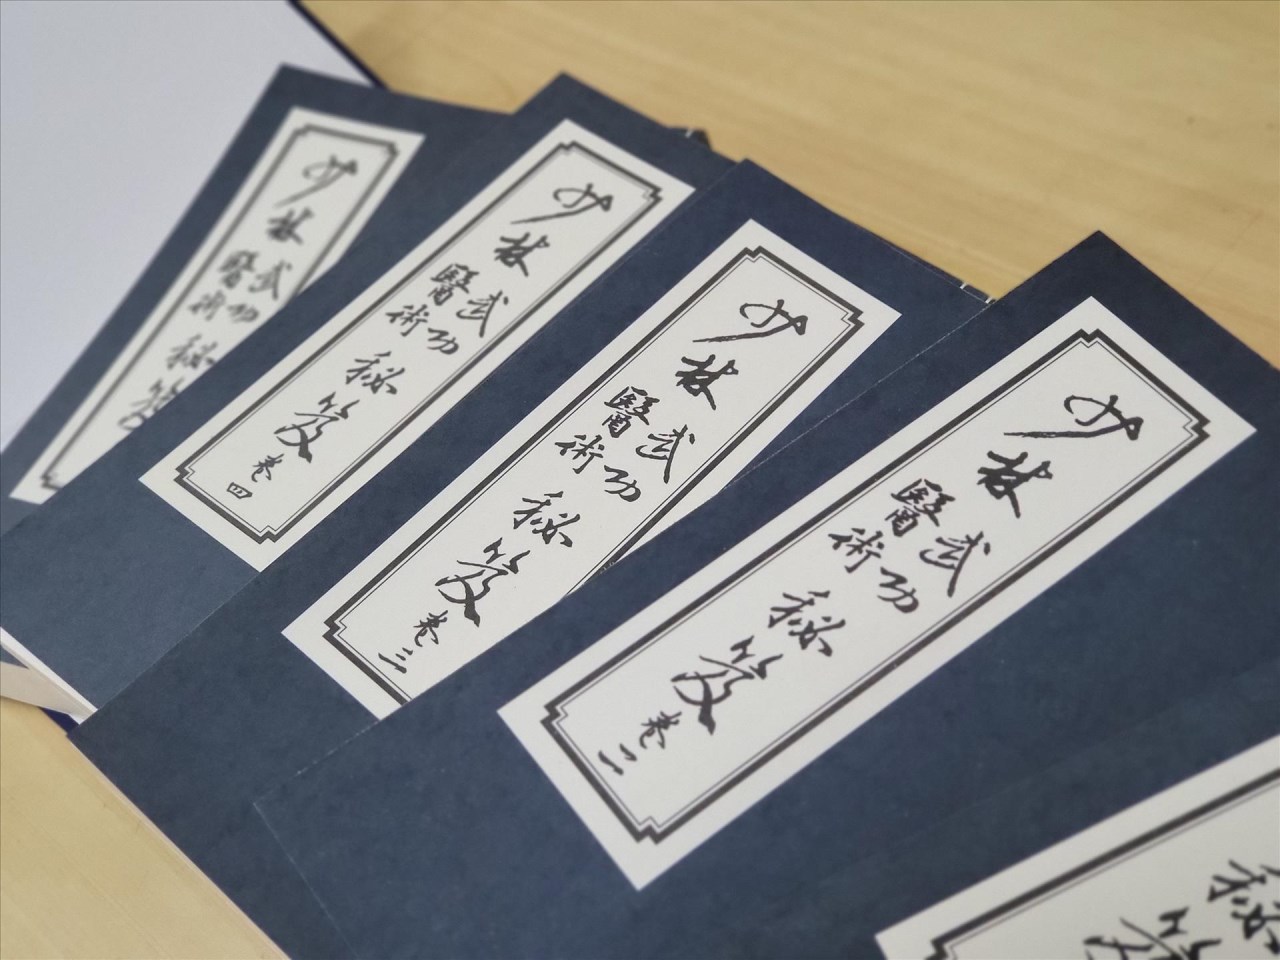 少林武功醫術秘笈
少林武功醫術秘笈卷四
少林武功醫術秘笈卷三
少林武功醫術秘笈卷二
秘笈